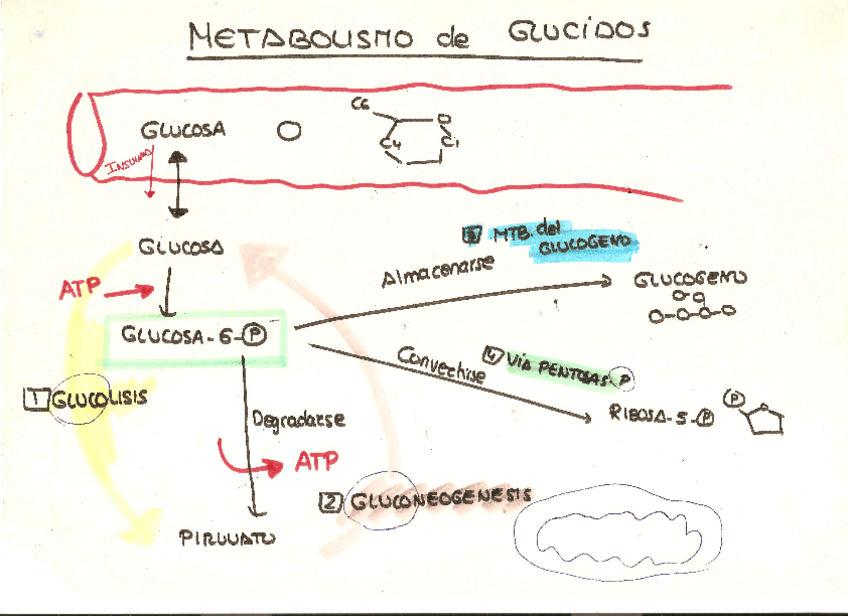 METABOLISMO de GLUCIDOS
C6
GLUCOSA O
C4 C1
O
INSULINA
GLUCOSA
3 MTB. del
GLUCOGENO
Almacenarse
GLUCOGENO
ATP
GLUCOSA-6-P
4 VIA PENTOSAS-P
Convertirse
RIBOSA-5-P
P
1 GLUCOLISIS
Degradarse
ATP
2 GLUCONEOGENESIS
PIRUVATO